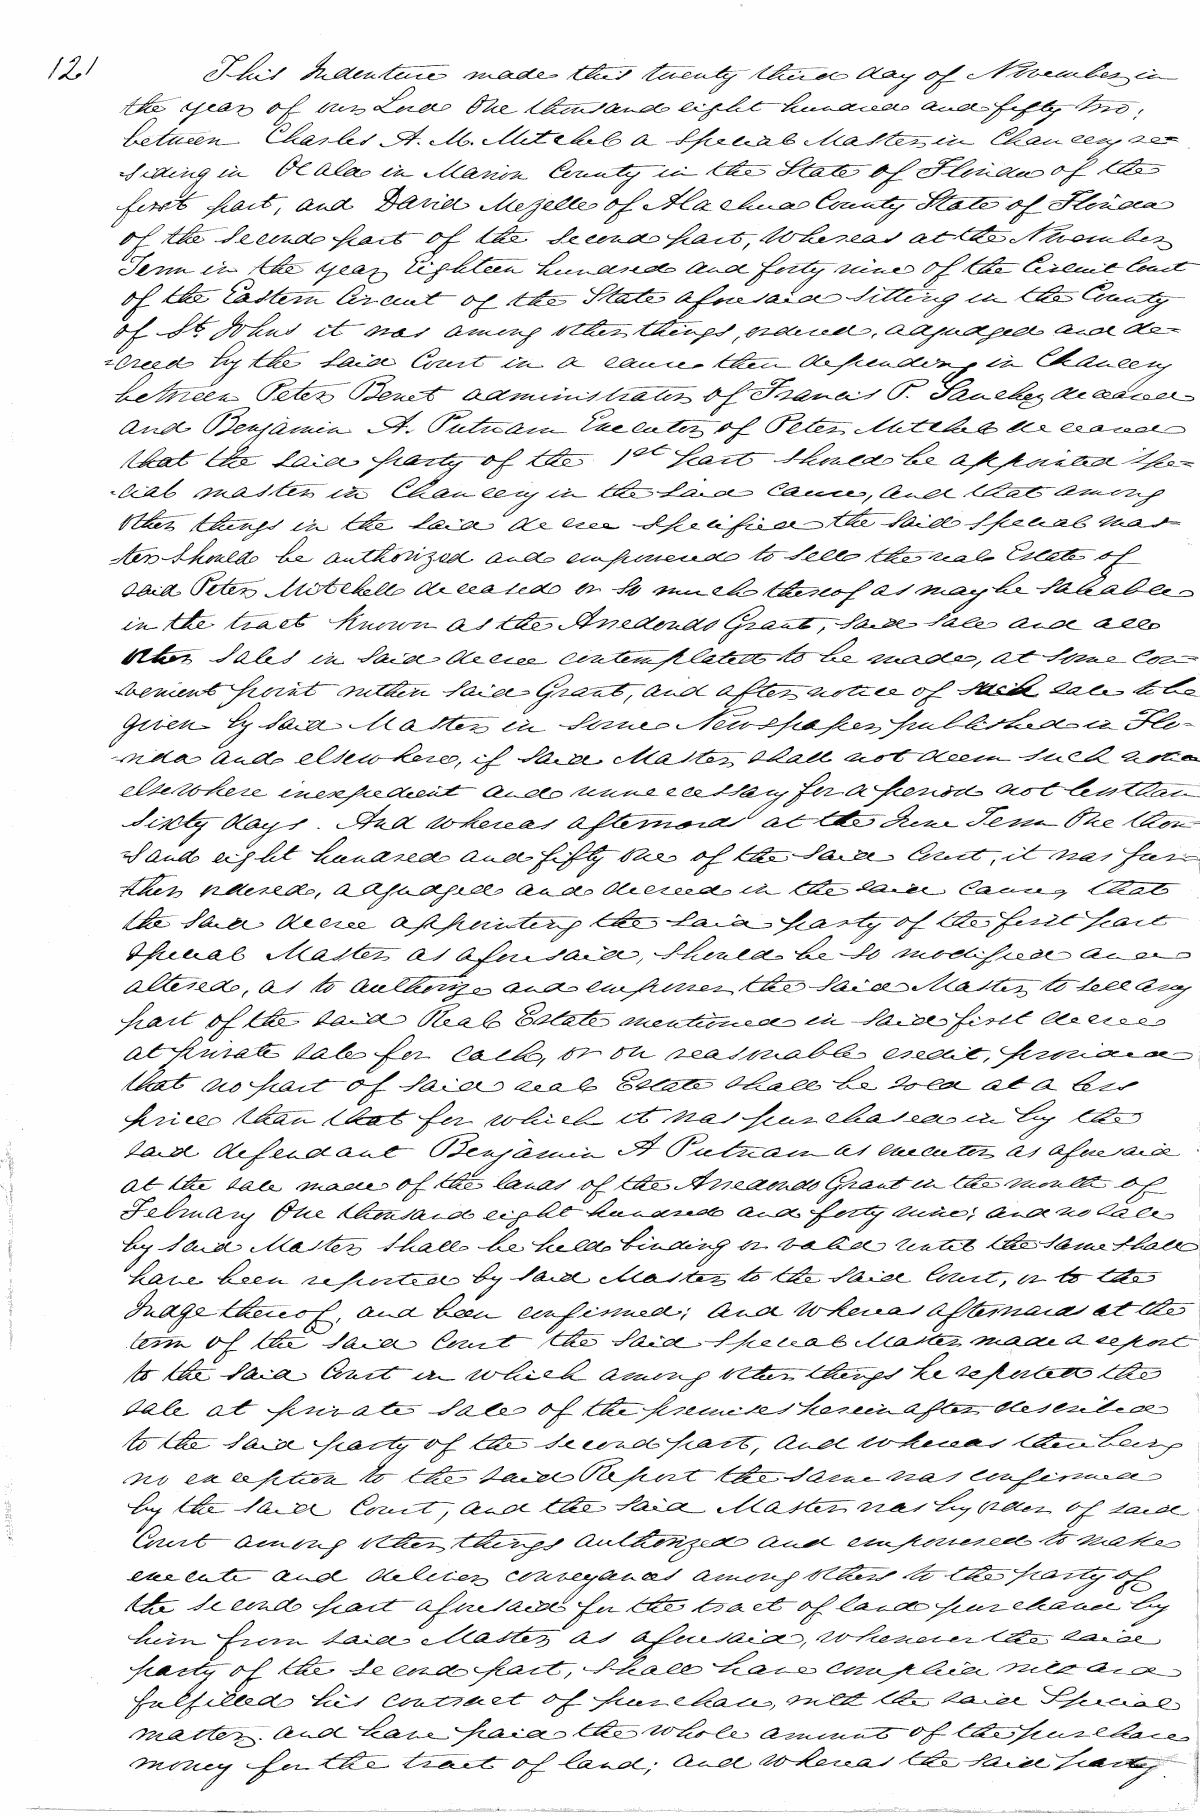 121 This Indenture made this twenty third day of November in
the year of our Lord One thousand eight hundred and fifty two,
between Charles A. M. Mitchel a Special Master in Chancery re=
siding in Ocala in Marion County in the State of Florida of the
first part, and David Mizelle of Alachua County State of Florida
of the Second part of the Second part, Whereas at the November
Term in the year Eighteen hundred and forty nine of the Circuit Court
of the Eastern Circuit of the State aforesaid sitting in the County
of St. Johns it was among other things, ordered, adjudged and de=
=creed by the said Court in a cause then depending in Chancery
between Peter Benet administrator of Francis P. Sanchez deceased
and Benjamin A. Putnam Executor of Peter Mitchel deceased
that the said party of the 1st part should be appointed Spe=
-cial master in Chancery in the said cause, and that among
other things in the said decree specified the said special mas=
ter should be authorized and empowered to sell the real Estate of
said Peter Mitchell deceased or so much thereof as may be saleable
in the tract known as the Arredondo Grant, said sale and all
other sales in said decree contemplated to be made, at some con=
venient point within said Grant, and after notice of such sale to be
given by said Master in some Newspaper published in Flo-
-rida and elsewhere, if said Master shall not deem such notice
elsewhere inexpedient and unnecessary for a period not less than
sixty days. And whereas afterwards at the June Term One thou-
=sand eight hundred and fifty one of the said Court, it was fur=
ther ordered, adjudged and decreed in the said cause, that
the said decree appointing the said party of the first part
special Master as aforesaid, should be so modified and
altered, as to authorize and empower the said Master to sell any
part of the said Real Estate mentioned in said first decree
at private sale for cash, or on reasonable credit, provided
that no part of said real Estate shall be sold at a less
price than that for which it was purchased in by the
said defendant Benjamin A Putnam as executor as aforesaid
at the sale made of the lands of the Arredondo Grant in the month of
February One thousand eight hundred and forty nine; and no sale
by said Master shall be held binding or valid until the same shall
have been reported by said Master to the said Court, or to the
Judge thereof, and been confirmed; and whereas afterwards at the
term of the said Court the said Special Master made a report
to the said Court in which among other things he reported the
sale at private sale of the premises hereinafter described
to the said party of the second part, and whereas there being
no exception to the said Report the same was confirmed
by the said Court, and the said Master was by order of said
Court among other things authorized and empowered to make
execute and deliver conveyances among others to the party of
the second part aforesaid for the tract of land purchased by
him from said Master as aforesaid, whenever the said
party of the second part, shall have complied with and
fulfilled his contract of purchase, with the said Special
master. and have paid the whole amount of the purchase
money for the tract of land; and whereas the said party